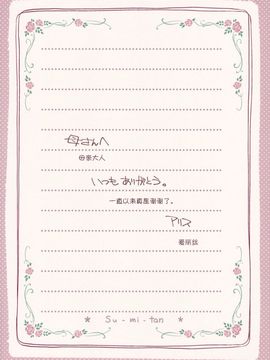 母さんへ
母亲大人
いつもありがとう。
一直以来真是谢谢了。
アリス
爱丽丝
* Su-mi-tan *